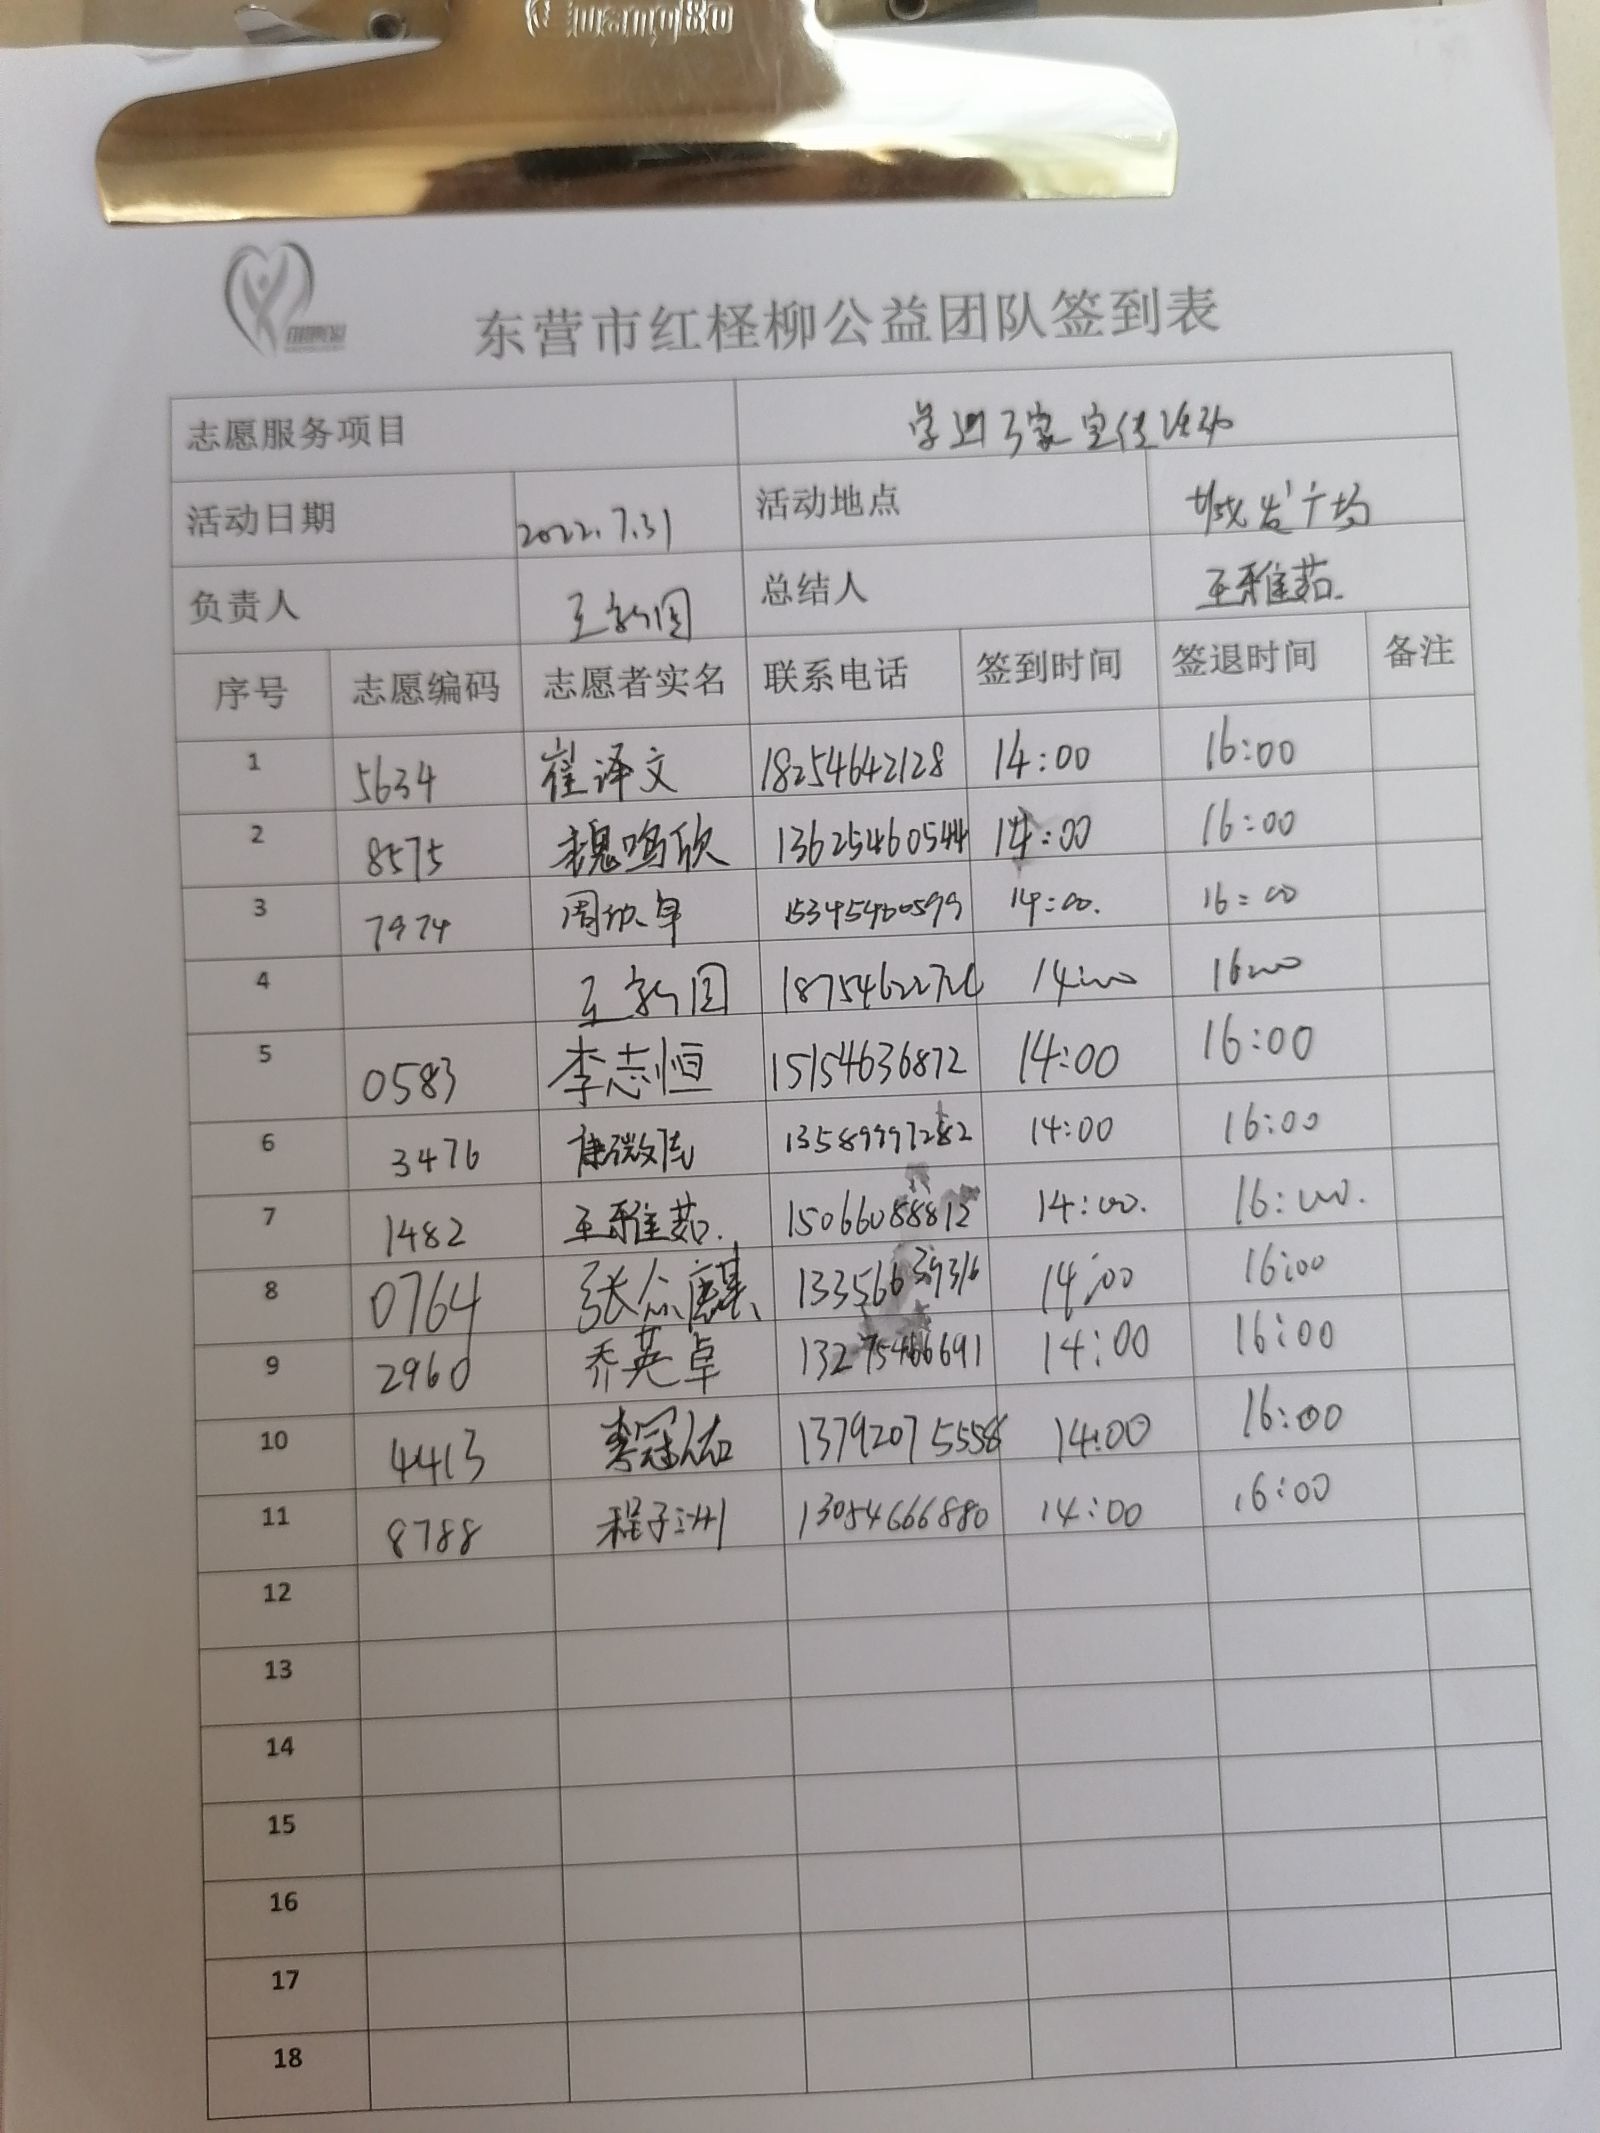 GuangBo
东营市红柽柳公益团队签到表
志愿服务项目 宣传活动
活动日期 2022.7.31 活动地点 城发广场
负责人 总结人 王雅茹.
序号 志愿编码 志愿者实名 联系电话 签到时间 签退时间 备注
1 5634 崔译文 18254642128 14:00 16:00
2 8575 魏鸣欣 13625460544 14:00 16:00
3 7974 周欣卓 15345460599 14:00. 16:00
4 14:00 16:00
5 0583 李志恒 15154636872 14:00 16:00
6 3476 13589997282 14:00 16:00
7 1482 王雅茹. 15066088812 14:00. 16:00.
8 0764 13356639316 14:00 16:00
9 2960 乔英卓 13275466691 14:00 16:00
10 4413 李冠佑 13792075558 14:00 16:00
11 8788 程子洲 13054666880 14:00 16:00
12
13
14
15
16
17
18